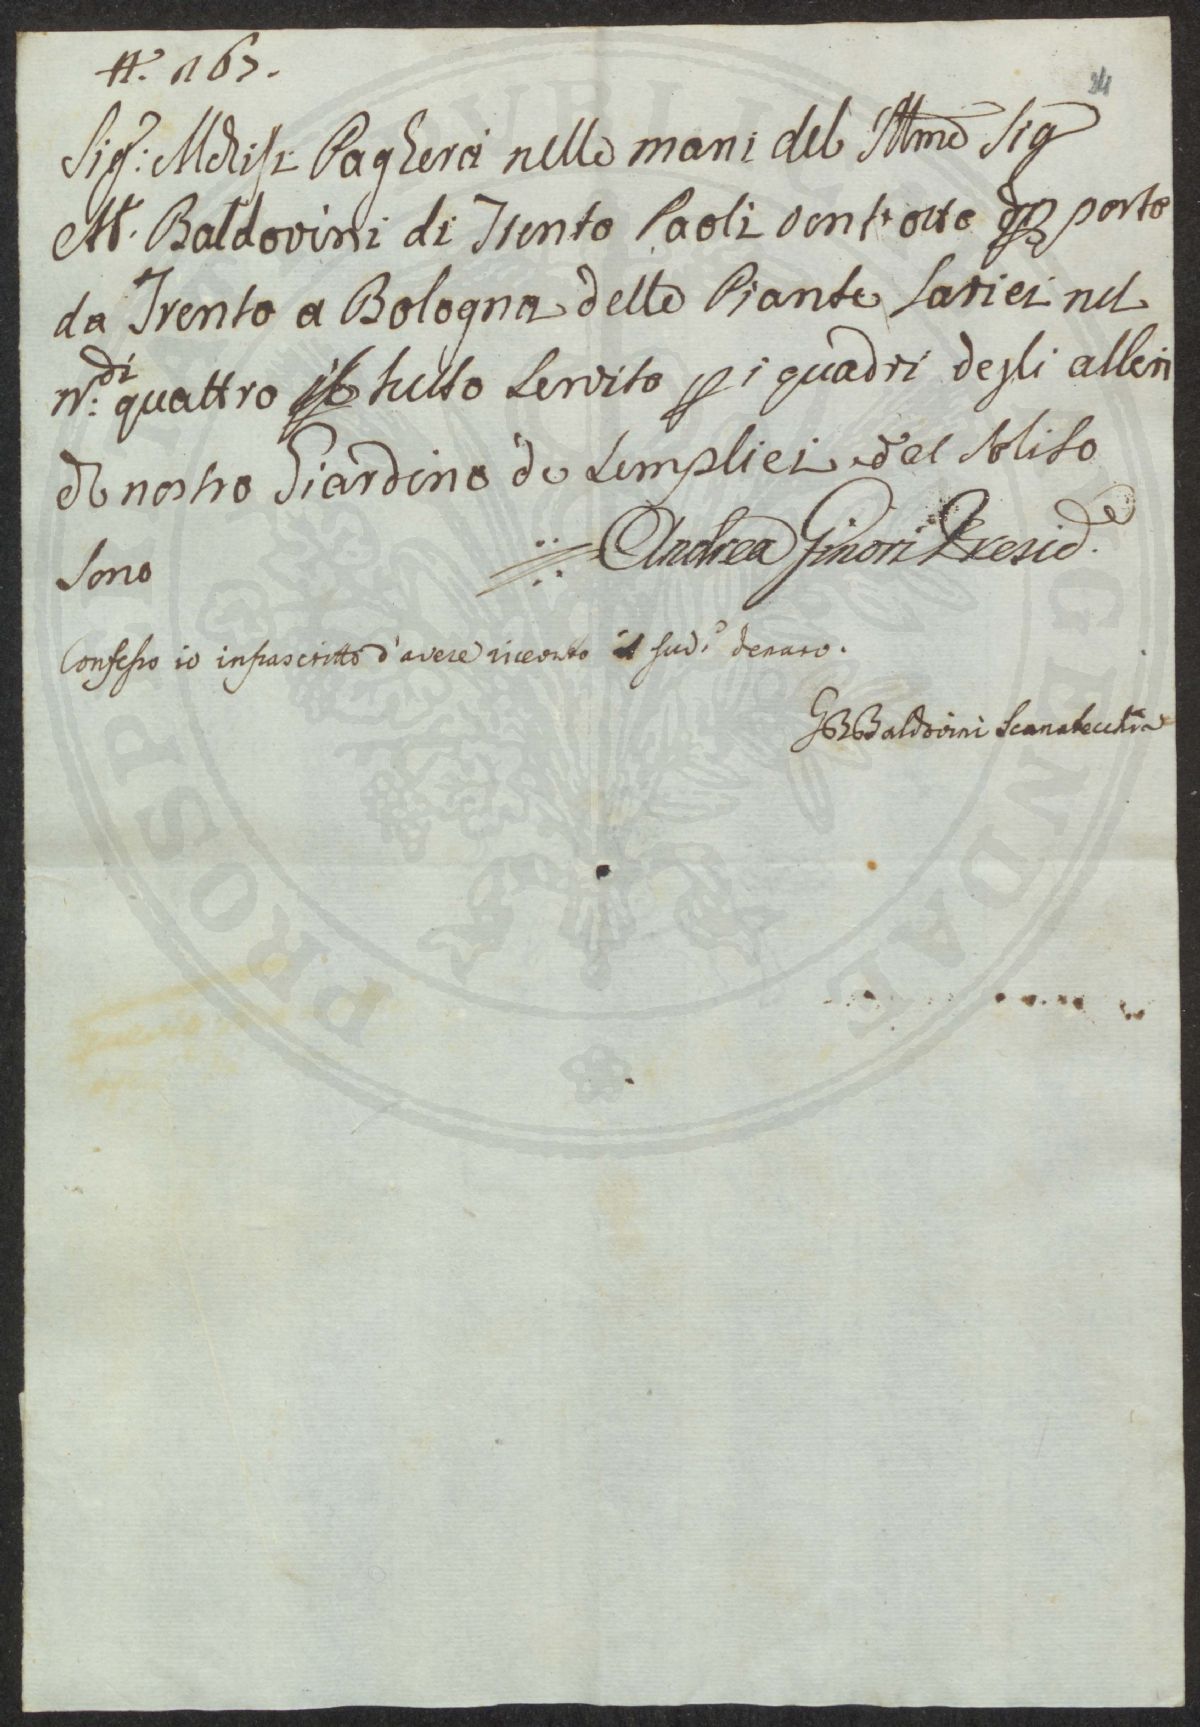 N.° 167.
34
Sig.r: Pagherà nelle mani del Illmo Sig
M. Baldovini di Trento Paoli ventotto per porto
da Trento a Bologna delle Piante Larici nel
n.°: di quattro il tutto servito p i quadri degli alberi
del nostro Giardino de semplici del solito
Sono
Andrea Ginori Presid.e
Confesso io infrascritto d'avere ricevuto il sud.o denaro.
GB Baldovini
PUBLICAE
PROSPERITATI
AUGENDAE